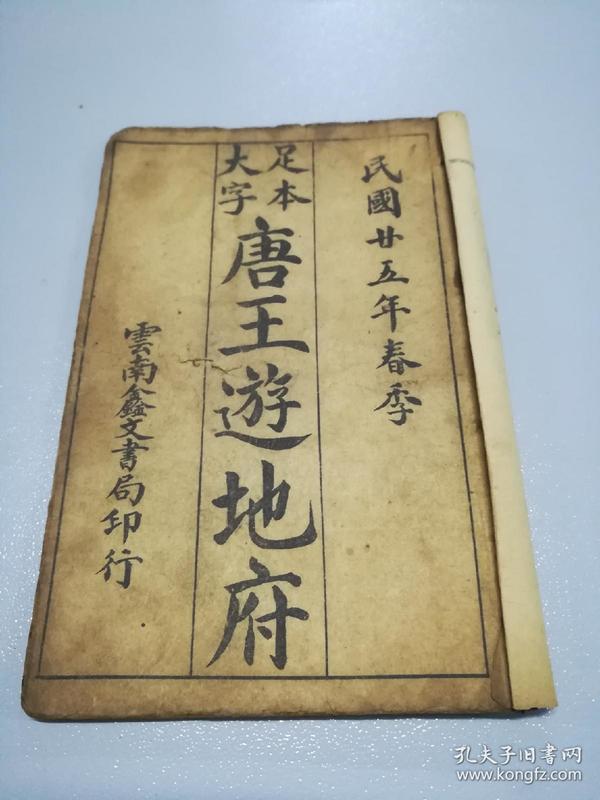 民國廿五年春季
足本
大字
唐王遊地府
雲南鑫文書局印行
孔夫子旧书网
www.kongfz.com